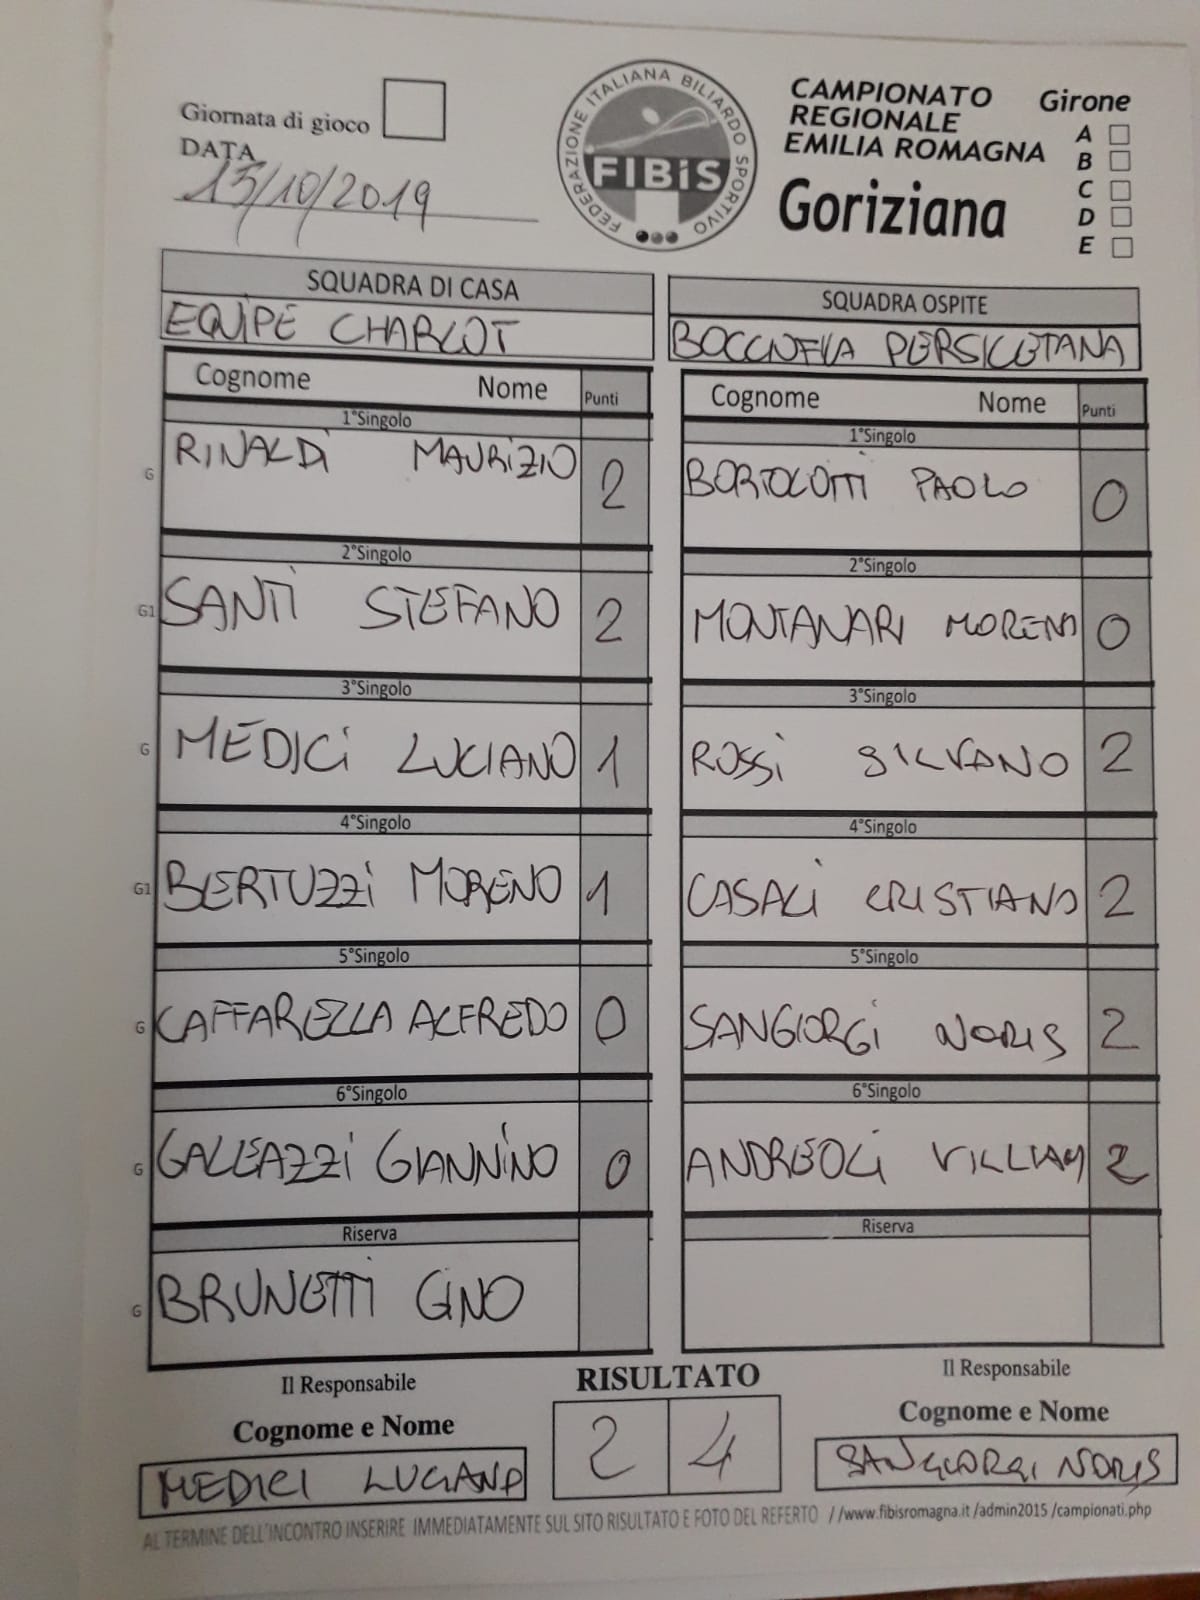 Giornata di gioco
DATA
13/10/2019
FEDERAZIONE ITALIANA BILIARDO SPORTIVO
FIBiS
CAMPIONATO
REGIONALE
EMILIA ROMAGNA
Goriziana
Girone
A
B
C
D
E
SQUADRA DI CASA
EQUIPE CHARLOT
SQUADRA OSPITE
PERSICETANA
Cognome Nome Punti
Cognome Nome Punti
1°Singolo
G RINALDI MAURIZIO 2
1°Singolo
BORTOLOTTI PAOLO 0
2°Singolo
G1 SANTI STEFANO 2
2°Singolo
MONTANARI MORENO 0
3°Singolo
G MEDICI LUCIANO 1
3°Singolo
ROSSI SILVANO 2
4°Singolo
G1 BERTUZZI MORENO 1
4°Singolo
CASALI CRISTIANO 2
5°Singolo
G CAFFARELLA ALFREDO 0
5°Singolo
SANGIORGI NORIS 2
6°Singolo
G GALEAZZI GIANNINO 0
6°Singolo
ANDREOLI VILLIAM 2
Riserva
G BRUNETTI GINO
Riserva
Il Responsabile
Cognome e Nome
MEDICI LUCIANO
RISULTATO
2 4
Il Responsabile
Cognome e Nome
SANGIORGI NORIS
AL TERMINE DELL'INCONTRO INSERIRE IMMEDIATAMENTE SUL SITO RISULTATO E FOTO DEL REFERTO //www.fibisromagna.it /admin2015 /campionati.php